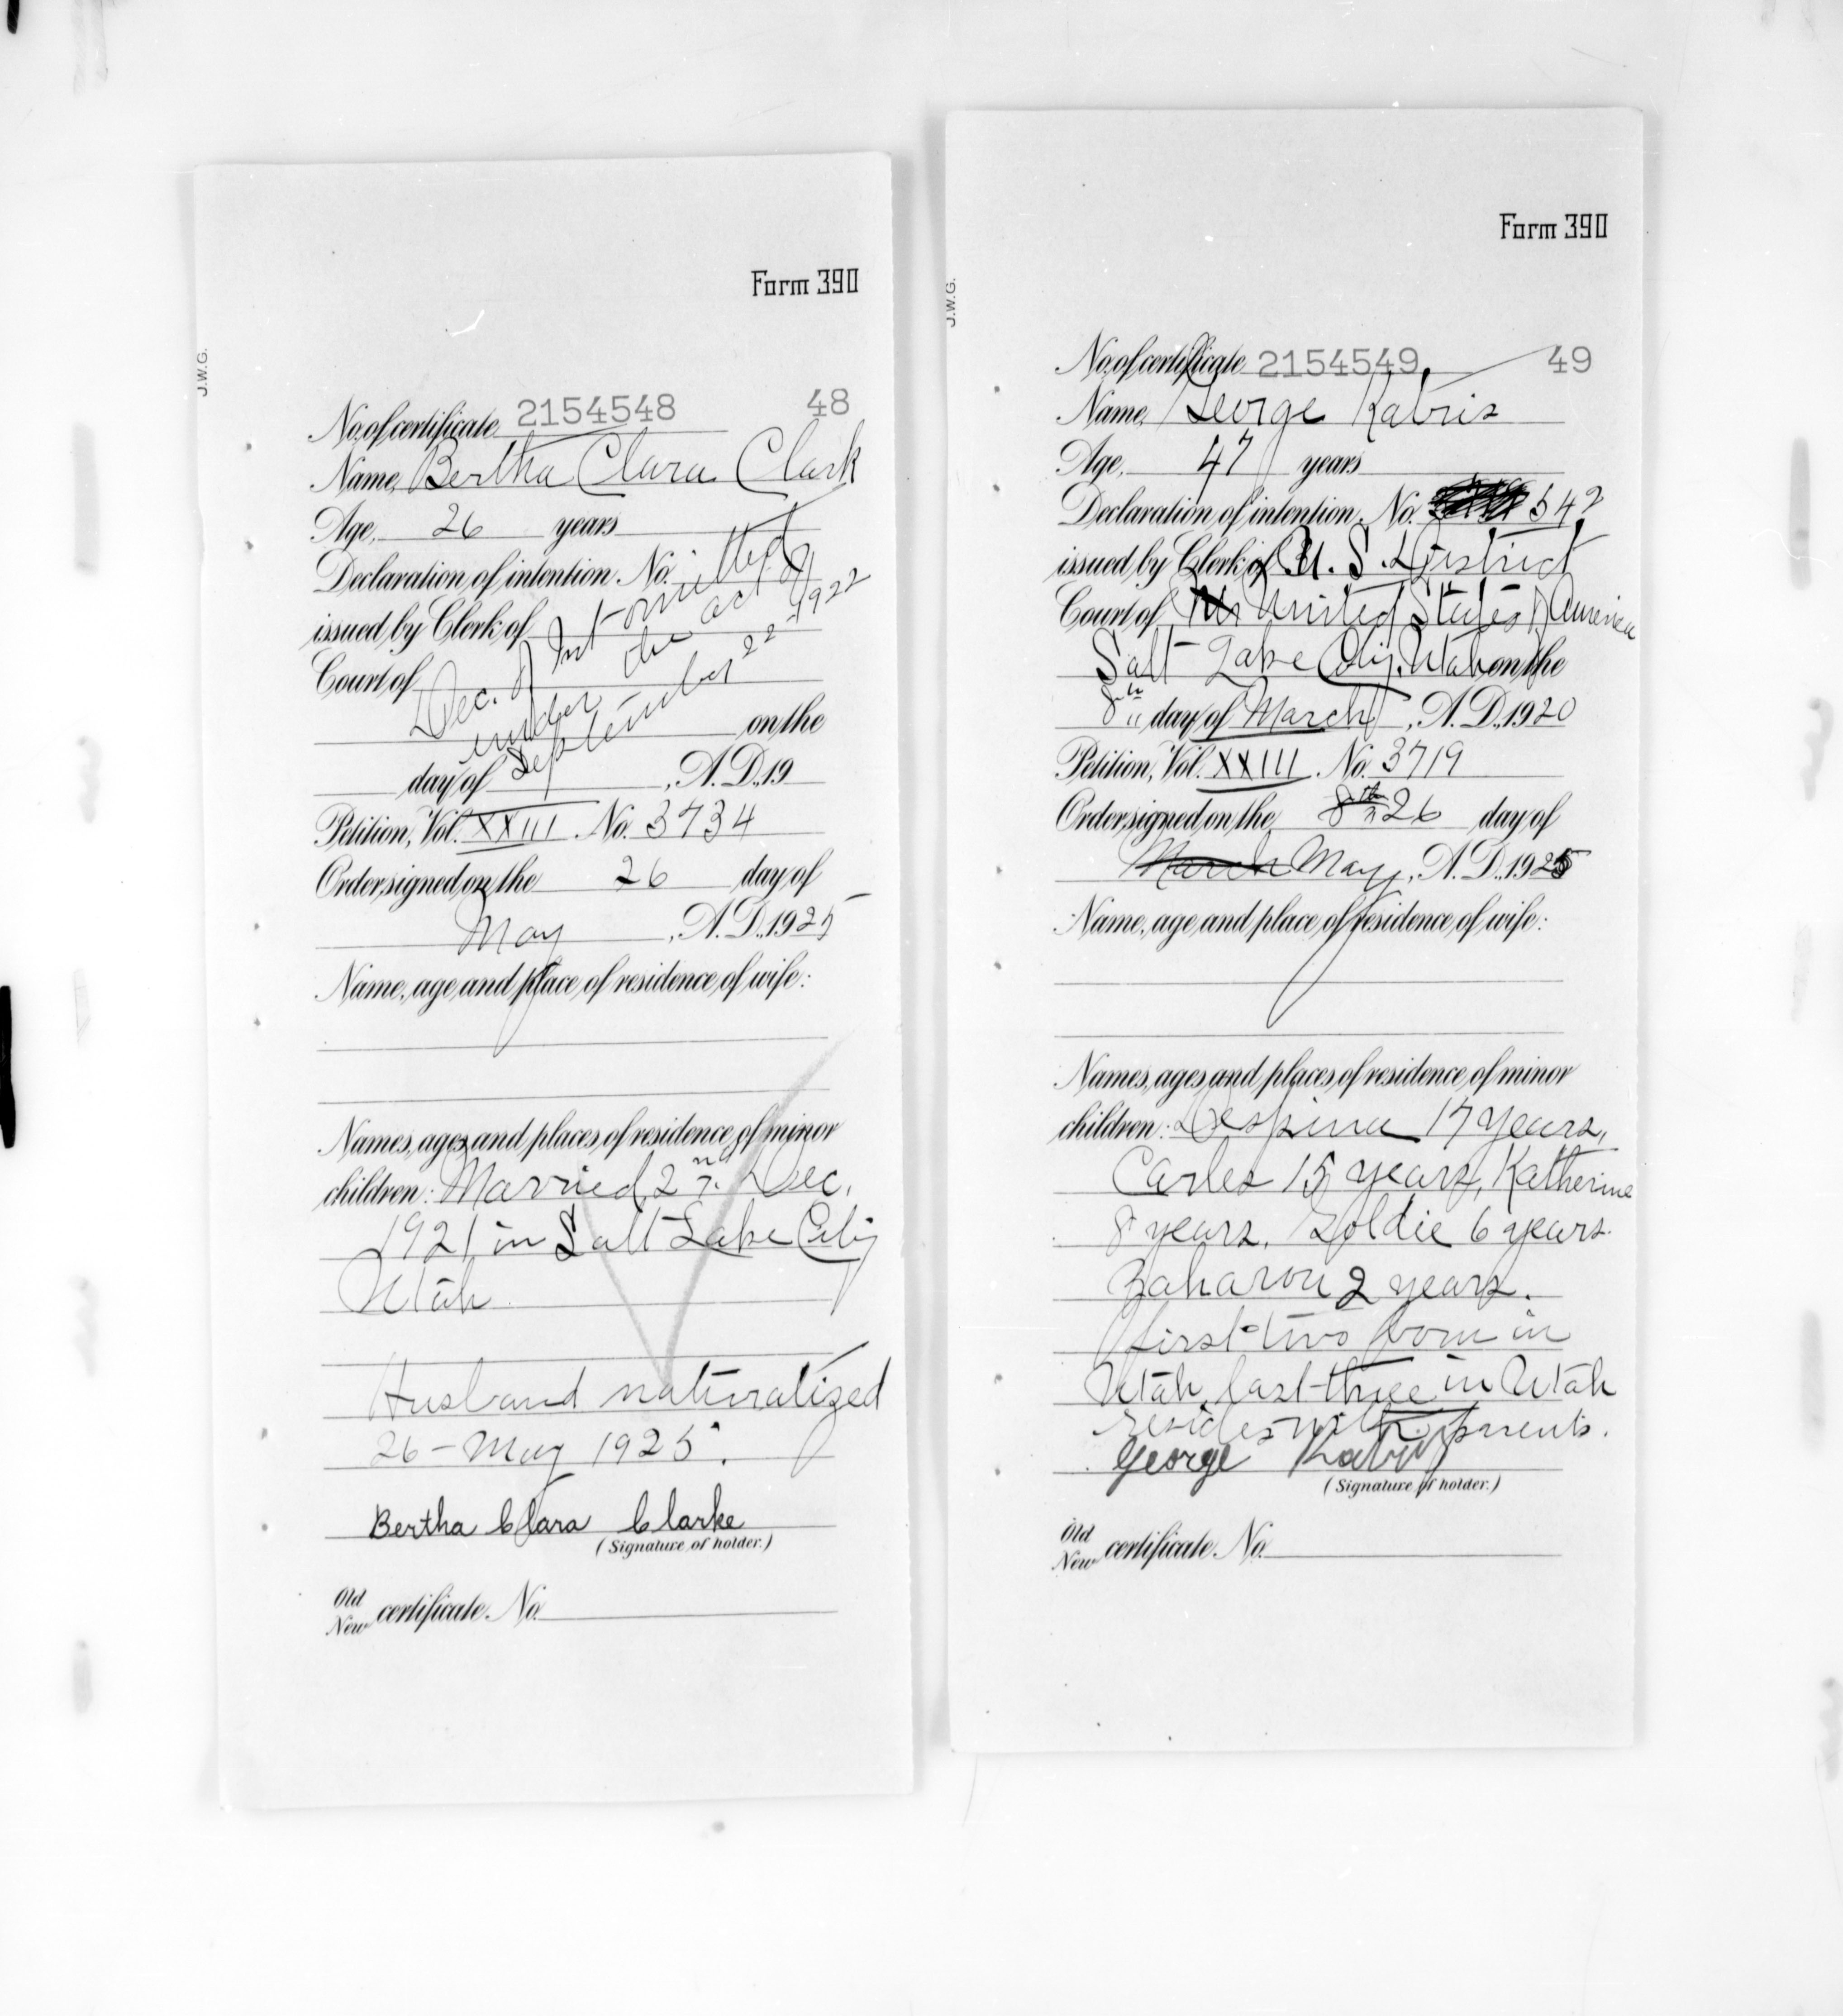 Form 390
J.W.G.
No. of certificate 2154548 48
Name, Bertha Clara Clark
Age, 26 years
Declaration of intention, No.
issued by Clerk of
Court of
Dec. of Int omitted
under the act of
September 22nd 1922
on the
day of , A. D., 19
Petition, Vol. XXIII No. 3734
Order signed on the 26 day of
May , A. D., 1925
Name, age and place of residence of wife:
Names, ages and places of residence of minor
children: Married, 2nd Dec.
1921 in Salt Lake City
Utah
Husband naturalized
26 - May 1925.
Bertha Clara Clarke
(Signature of holder.)
Old
New certificate No.
Form 390
J.W.G.
No. of certificate 2154549 49
Name, George Kabris
Age, 47 years
Declaration of intention, No. 542
issued by Clerk of U. S. District
Court of United States of America
Salt Lake City, Utah on the
8th day of March , A. D., 1920
Petition, Vol. XXIII No. 3719
Order signed on the 8th 26 day of
March May , A. D., 1925
Name, age and place of residence of wife:
Names, ages and places of residence of minor
children: Despina 17 years,
Carles 15 years, Katherine
8 years. Goldie 6 years.
Zaharou 2 years.
first two born in
Utah, last three in Utah
resides with parents.
George Kabris
(Signature of holder.)
Old
New certificate No.